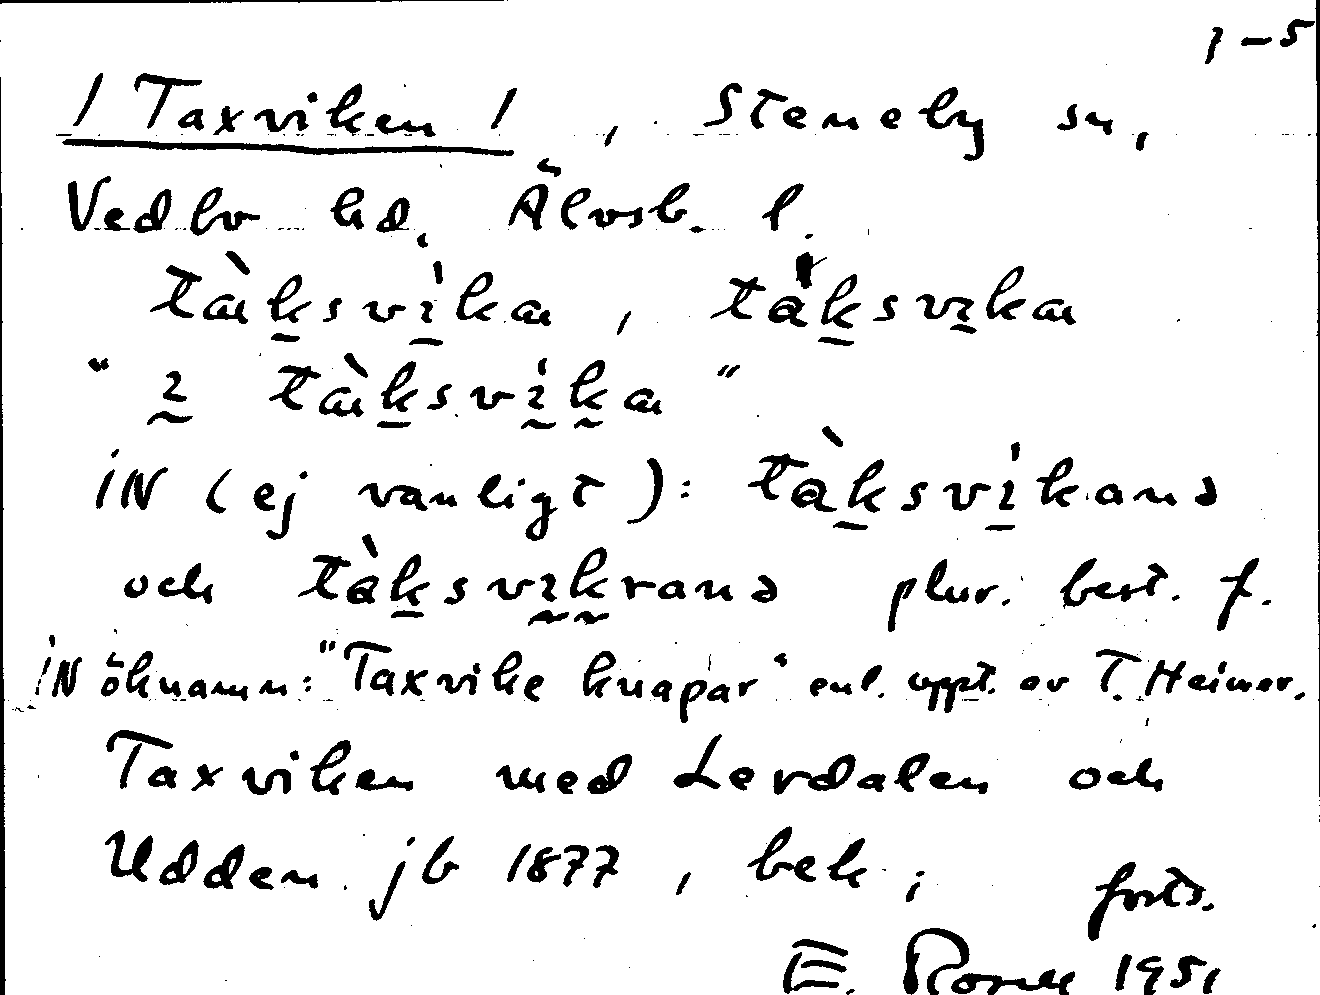 1-5
/ Taxviken / , Steneby sn,
Vedbo hd. Älvsb. l.
tàksvìka , tàksvıka
" ı tàksvìka "
iN (ej vanligt): tàksvìkanə
och tàksvıkranə plur. best. f.
iN öknamn: "Taxvike knapar" enl. uppt. av T. Heimer.
Taxviken med Lerdalen och
Udden jb 1877, bek;
forts.
E. 1951